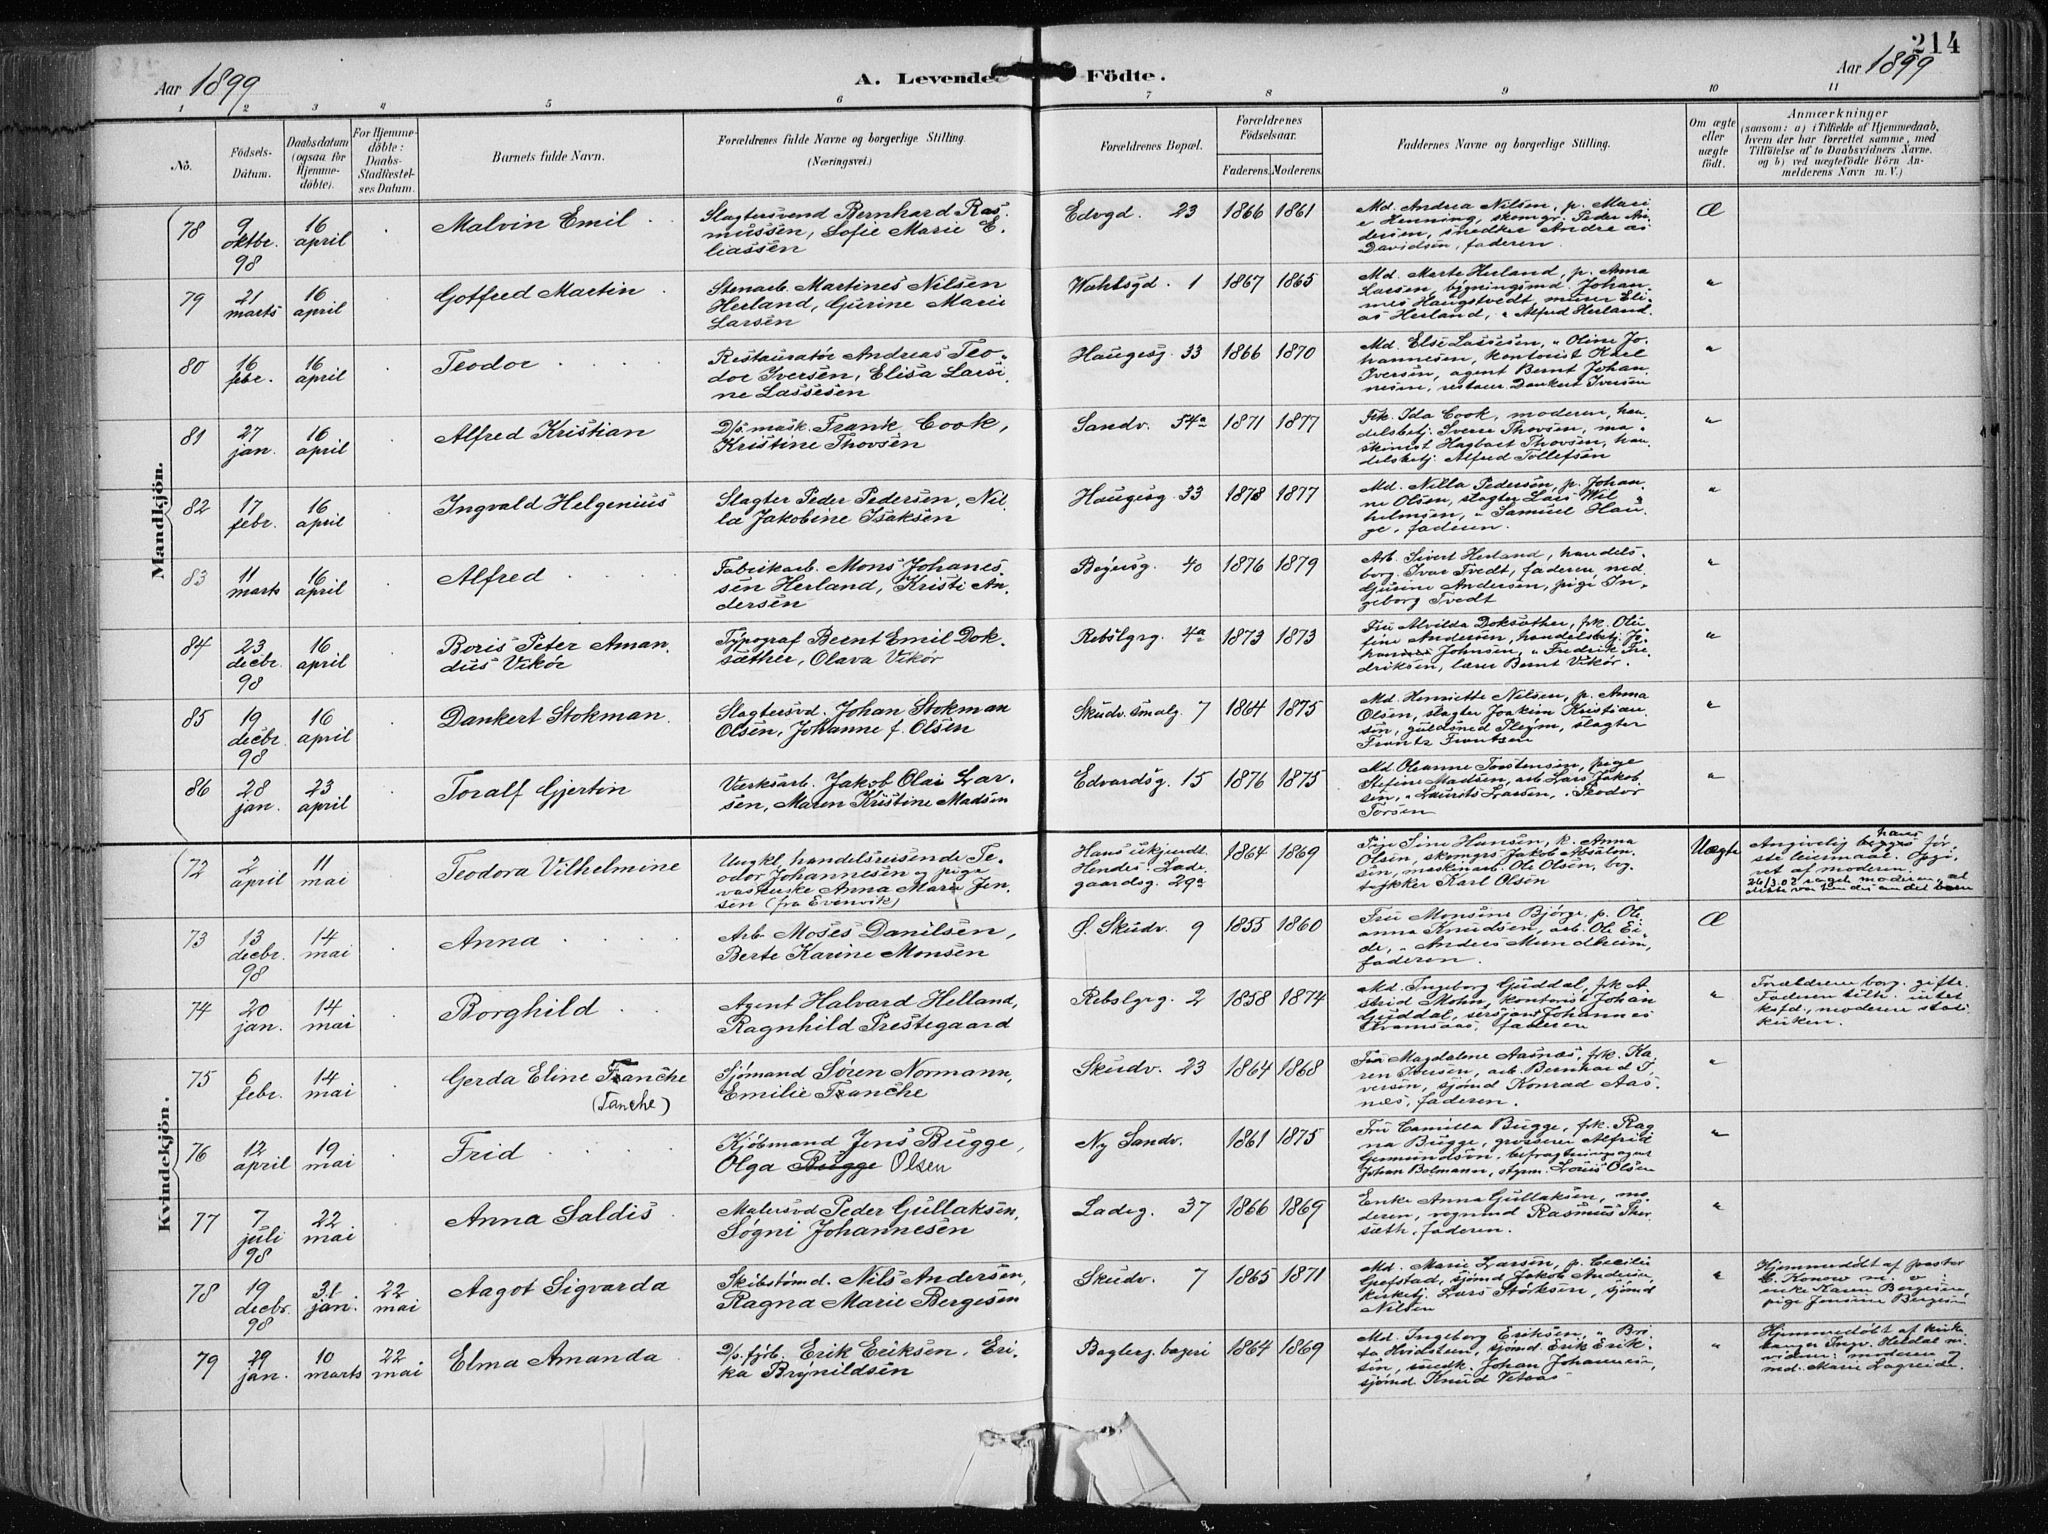 214
Aar 1899
A. Levende Födte.
Aar 1899
1 2 3 4 5 6 7 8 9 10 11
No.
Födsels-
Datum.
Daabsdatum
(ogsaa for
Hjemme-
döbte).
For Hjemme-
döbte:
Daabs-
Stadfæstel-
ses Datum.
Barnets fulde Navn.
Forældrenes fulde Navne og borgerlige Stilling.
(Næringsvei.)
Forældrenes Bopæl.
Forældrenes
Födselsaar.
Faderens. Moderens.
Faddernes Navne og borgerlige Stilling.
Om ægte
eller
uægte
födt.
Anmærkninger
(saasom: a) i Tilfælde af Hjemmedaab,
hvem der har forrettet samme, med
Tilföielse af to Daabsvidners Navne.
og b) ved uægtefödte Börn An-
melderens Navn m. V.)
Mandkjön.
78
9
oktbr.
98
16
april
Malvin Emil
Slagtersvend Bernhard Ras-
mussen, Sofie Marie E-
liassen
Edvgd. 23
1866 1861
Md. Andrea Nilsen, p. Mari
e Henning, skomgr. Peder An-
dersen, snedker Andreas
Davidsen, faderen.
Æ
79
21
marts
16
april
Gotfred Martin
Stenarb. Martines Nilsen
Herland, Gurine Marie
Larsen
Wahlsgd. 1
1867 1865
Md. Marte Herland, p. Anna
Larsen, bygningsmd. Johan-
nes Haugstvedt, murer Eli-
as Herland, " Alfred Herland.
"
80
16
febr.
16
april
Teodor
Restauratør Andreas Teo-
dor Iversen, Elisa Larsi-
ne Lassesen
Haugesg. 33
1866 1870
Md. Else Lassesen, " Oline Jo-
hannesen, kontorist Karl
Iversen, agent Bernt Johan
nesen, restaur. Dankert Iversen
"
81
27
jan.
16
april
Alfred Kristian
D/s. mask. Frank Cook,
Kristine Thovsen
Sandv. 54a
1871 1877
Frk. Ida Cook, moderen, han-
delsbetj. Sverre Thovsen, ma-
skinist Hagbart Thovsen, han-
delsbetj. Alfred Tollefsen
"
82
17
febr.
16
april
Ingvald Helgenius
Slagter Peder Pedersen, Nil-
la Jakobine Isaksen
Haugesg. 33
1878 1877
Md. Nilla Pedersen, p. Johan-
ne Olsen, slagter Lars Wil-
helmsen, " Samuel Hau-
ge, faderen.
"
83
11
marts
16
april
Alfred
Fabrikarb. Mons Johanes-
sen Herland, Kristi An-
dersen
Bøgesg. 40
1876 1879
Arb. Sivert Herland, handels-
borg. Ivar Tvedt, faderen med
Gurine Andersen, pige In-
geborg Tvedt
"
84
23
decbr.
98
16
april
Boris Peter Aman-
dius Vikør
Typograf Bernt Emil Dok-
sæther, Olava Vikør
Rebslgrg. 4a
1873 1873
Fru Alvilda Doksæther, frk. Olu-
fine Andersen, handelsbetj. Jo-
hannes Johnsen, " Fredrik Fre-
driksen, lærer Bernt Vikør.
"
85
19
decbr.
98
16
april
Dankert Stokman
Slagtersvd. Johan Stokman
Olsen, Johanne f. Olsen
Skudv. smalg. 7
1864 1875
Md. Henriette Nilsen, p. Anna
Olsen, slagter Joakim Kristian
sen, guldsmed Pleym, slagter
Frantz Frantzen
"
86
28
jan.
23
april
Toralf Gjertin
Værksarb. Jakob Olai Lar-
sen, Maren Kristine Madsen
Edvardsg. 15
1876 1875
Md Oleanne Torstensen, pige
Stefine Madsen, arb. Lars Jakob
sen, " Laurits Larsen, " Teodor
Torsen
"
Kvindekjön.
72
2
april
11
mai
Teodora Vilhelmine
Ungkl. handelsreisende Te-
odor Johannesen og pige
vaskerske Anna Marie Jen-
sen (fra Evenvik)
Hans ukjendt.
Hendes: Lade-
gaardsg. 29a
1864 1869
Pige Sine Hansen, k. Anna
Olsen, skomgrs. Jakob Absalon-
sen, maskinarb. Ole Olsen, bog-
trykker Karl Olsen
Uægte
Angivelig hans før-
ste leiermaal. Opgi-
vet af moderen.
26/3.02 sagde moderen, at
dette var hendes andet barn
73
13
decbr.
98
14
mai
Anna
Arb. Moses Danilsen,
Berte Karine Monsen
Ø. Skudv. 9
1855 1860
Fru Monsine Bjørge, p. Ole-
anna Knudsen, arb. Ole Ei-
de, " Anders Mundheim,
faderen.
Æ
74
20
jan.
14
mai
Borghild
Agent Halvard Helland,
Ragnhild Prestegaard
Rebslgrg. 2
1858 1874
Md. Ingeborg Guddal, frk A-
strid Mohn, kontorist Johan
Guddal, sersjant Johannes
Tromsaas, faderen
"
Forældrene borg. gifte.
Faderen tilh. luther
ksfd., moderen stats-
kirken.
75
6
febr.
14
mai
Gerda Eline Franche
(Tanche)
Sjømand Søren Normann,
Emilie Franche
Skudv. 23
1864 1868
Fru Magdalene Aasnæs, frk. Ka-
ren Iversen, arb. Bernhard I-
versen, sjømd Konrad Aas-
næs, faderen.
"
76
12
april
19
mai
Frid
Kjøbmand Jens Bugge,
Olga Bugge Olsen
Ny Sandv.
1861 1875
Fru Camilla Bugge, frk. Rag
na Bugge, grosserer Alfred
Gunnundsen, befragtningsagent
Johan Bolmann, styrm. Louis Olsen
"
77
7
juli
98
22
mai
Anna Saldis
Malersvd Peder Gullaksen,
Søgni Johannesen
Ladeg. 37
1866 1869
Enke Anna Gullaksen, mo-
deren, vognmd Rasmus Skor-
sæth, faderen.
"
78
19
decbr.
98
31
jan.
22
mai
Aagot Sigvarda
Skibstømd. Nils Andersen,
Ragna Marie Bergesen
Skudv. 7
1865 1871
Md. Marie Larsen, p. Cecilie
Grefstad, sjømd Jakob Andersen,
kirketj. Lars Størksen, sjømd
Nilsen
"
Hjemmedøbt af pastor
C. Konow m. v:
enke Karen Bergesen,
pige Jensine Bergesen
79
29
jan.
10
marts
22
mai
Elma Amanda
D/s. fyrb. Erik Eriksen, Eri-
ka Brynildsen
Baglerg. bageri
1864 1869
Md. Ingeborg Eriksen, " Bri-
ta Hvidsten, sjømd. Erik Erik-
sen, snedk. Johan Johannesen,
sjømd. Knud Veteaas
"
Hjemmedøbt af kirke
sanger Ingv. Heldal m.
vidner: moderen og
md. Marie Lagreide.